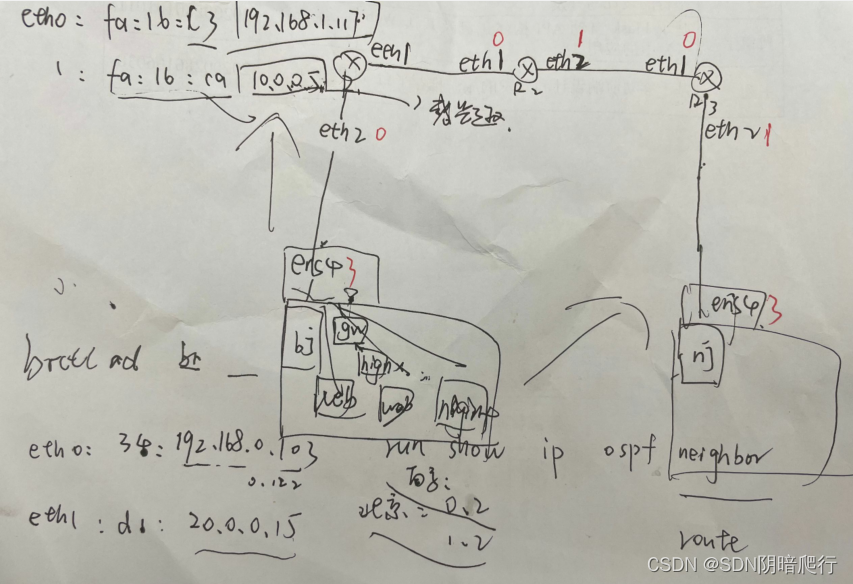 eth0: fa:16:c3 192.168.1.117
1: fa:16:ca 10.0.0.5
eth1
0
eth1
R2
1
eth2
0
eth1
R3
eth2 0
eth2 1
ens4 3
bj
gw
high
web
web
nginx
ens4 3
nj
brctl ad br _
eth0: 34: 192.168.0.103
0.122
run show ip ospf neighbor
route
eth1: d1: 20.0.0.15
北京: 0.2
1.2
CSDN @SDN阴暗爬行